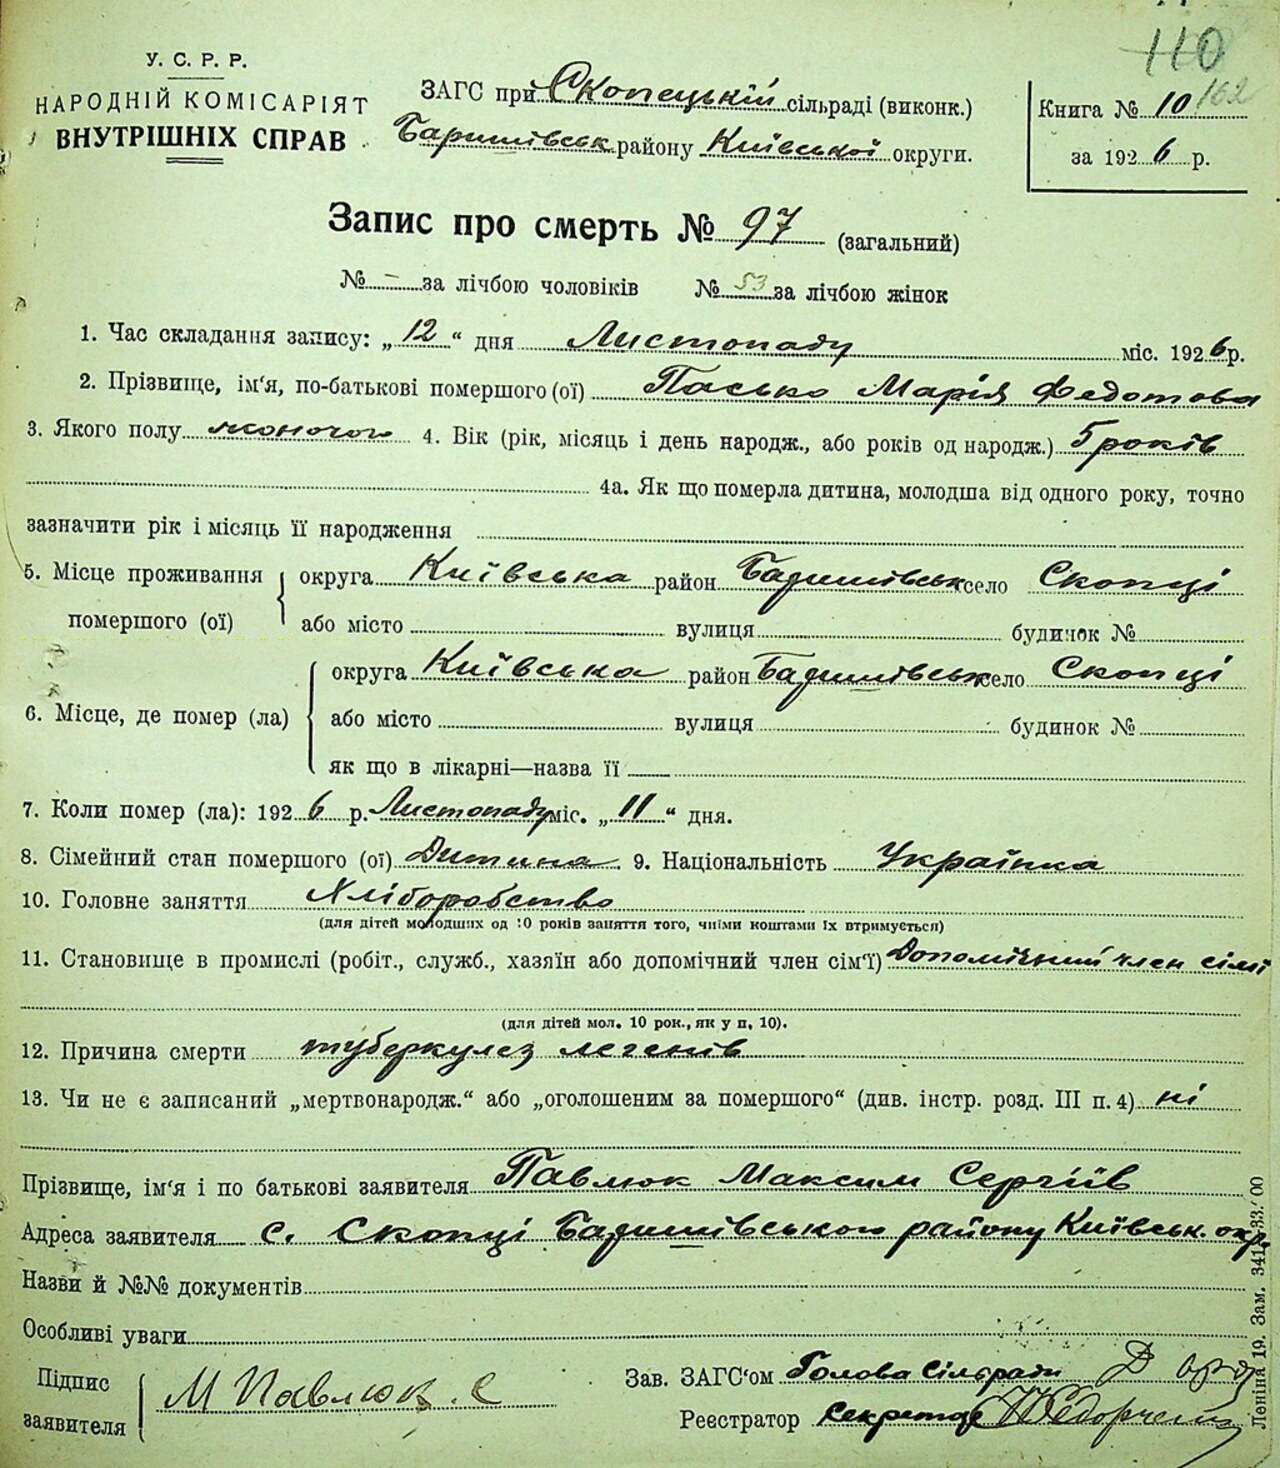 110
162
У. С. Р. Р.
НАРОДНІЙ КОМІСАРІЯТ
ВНУТРІШНІХ СПРАВ
ЗАГС при Скопецькій сільраді (виконк.)
Баришівськ району Київської округи.
Книга № 10
за 1926 р.
Запис про смерть № 97 (загальний)
№ - за лічбою чоловіків № 53 за лічбою жінок
1. Час складання запису: „12“ дня Листопаду міс. 1926 р.
2. Прізвище, ім‘я, по-батькові помершого (ої) Пасько Марія Федотова
3. Якого полу жоночого 4. Вік (рік, місяць і день народж., або років од народж.) 5 років
4а. Як що померла дитина, молодша від одного року, точно
зазначити рік і місяць її народження
5. Місце проживання помершого (ої) округа Київська район Баришівськ село Скопці
або місто вулиця будинок №
6. Місце, де помер (ла) округа Київська район Баришівськ село Скопці
або місто вулиця будинок №
як що в лікарні—назва її —
7. Коли помер (ла): 1926 р. Листопаду міс. „11“ дня.
8. Сімейний стан помершого (ої) Дитина 9. Національність Українка
10. Головне заняття Хліборобство
(для дітей молодших од 10 років заняття того, чиїми коштами їх втримується)
11. Становище в промислі (робіт., служб., хазяїн або допомічний член сім‘ї) Допомічний член сімї
(для дітей мол. 10 рок., як у п. 10).
12. Причина смерти туберкулез легенів
13. Чи не є записаний „мертвонародж.“ або „оголошеним за помершого“ (див. інстр. розд. III п. 4) ні
Прізвище, ім‘я і по батькові заявителя Павлюк Максим Сергіїв
Адреса заявителя с. Скопці Баришівського району Київськ. окр.
Назви й №№ документів
Особливі уваги
Підпис заявителя М Павлюк. С
Зав. ЗАГС‘ом Голова Сільради
Реєстратор Секретар
Леніна 19. Зам. 341-33.